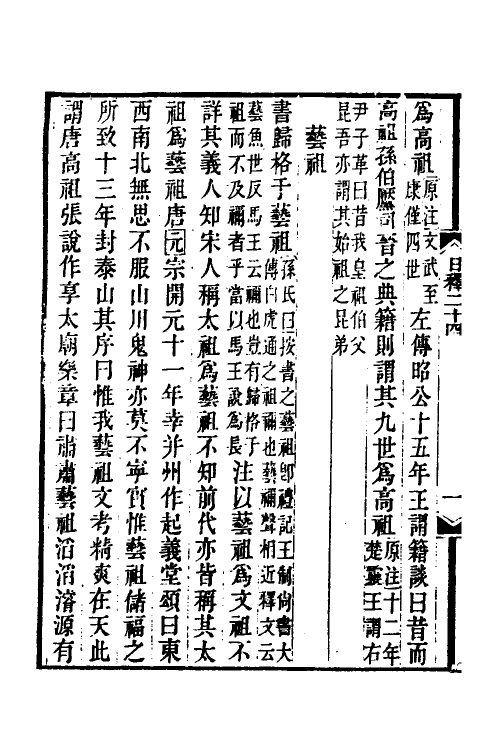 爲高祖原注文武至
康僅四世
左傳昭公十五年王謂籍談曰昔而
高祖孫伯黶司晉之典籍則謂其九世爲高祖原注十二年
楚靈王謂右
尹子革曰昔我皇祖伯父
昆吾亦謂其始祖之昆弟
藝祖
書歸格于藝祖孫氏曰按書之藝祖卽禮記王制尙書大
傳白虎通之祖禰也藝禰聲相近釋文云
藝魚世反馬王云禰也豈有歸格于
祖而不及禰者乎當以馬王說爲長
注以藝祖爲文祖不
詳其義人知宋人稱太祖爲藝祖不知前代亦皆稱其太
祖爲藝祖唐元宗開元十一年幸并州作起義堂頌曰東
西南北無思不服山川鬼神亦莫不寧實惟藝祖儲福之
所致十三年封泰山其序曰惟我藝祖文考精爽在天此
謂唐高祖張說作享太廟樂章曰肅肅藝祖滔滔濬源有
日釋二十四
一